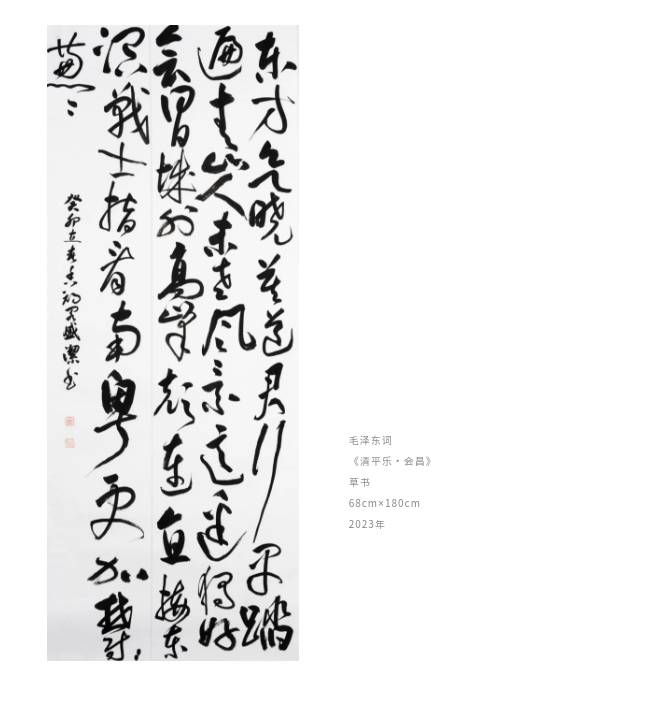 东方欲晓莫道君行早踏
遍青山人未老风景这边独好
会昌城外高峰颠连直接东
溟战士指看南粤更加郁々
葱々
癸卯立春 盛潔书
毛泽东词
《清平乐·会昌》
草书
68cm×180cm
2023年